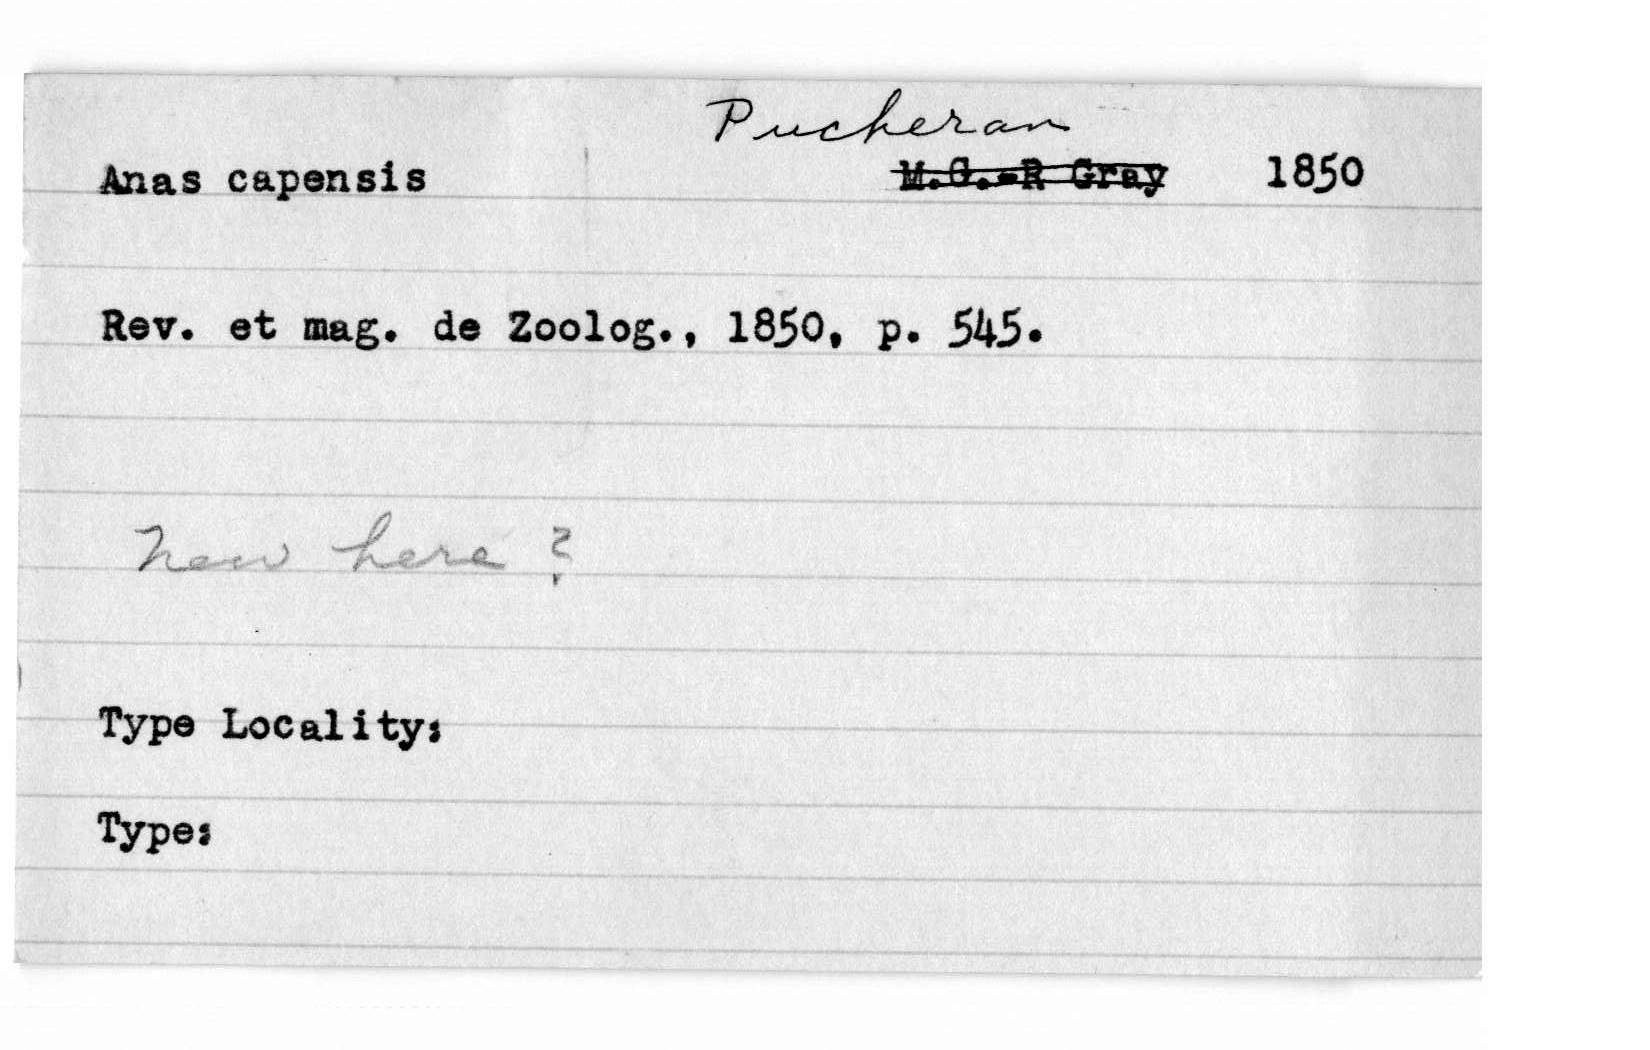 Pucheran
Anas capensis M.G.-R Gray 1850
Rev. et mag. de Zoolog., 1850, p. 545.
New here ?
Type Locality:
Type: